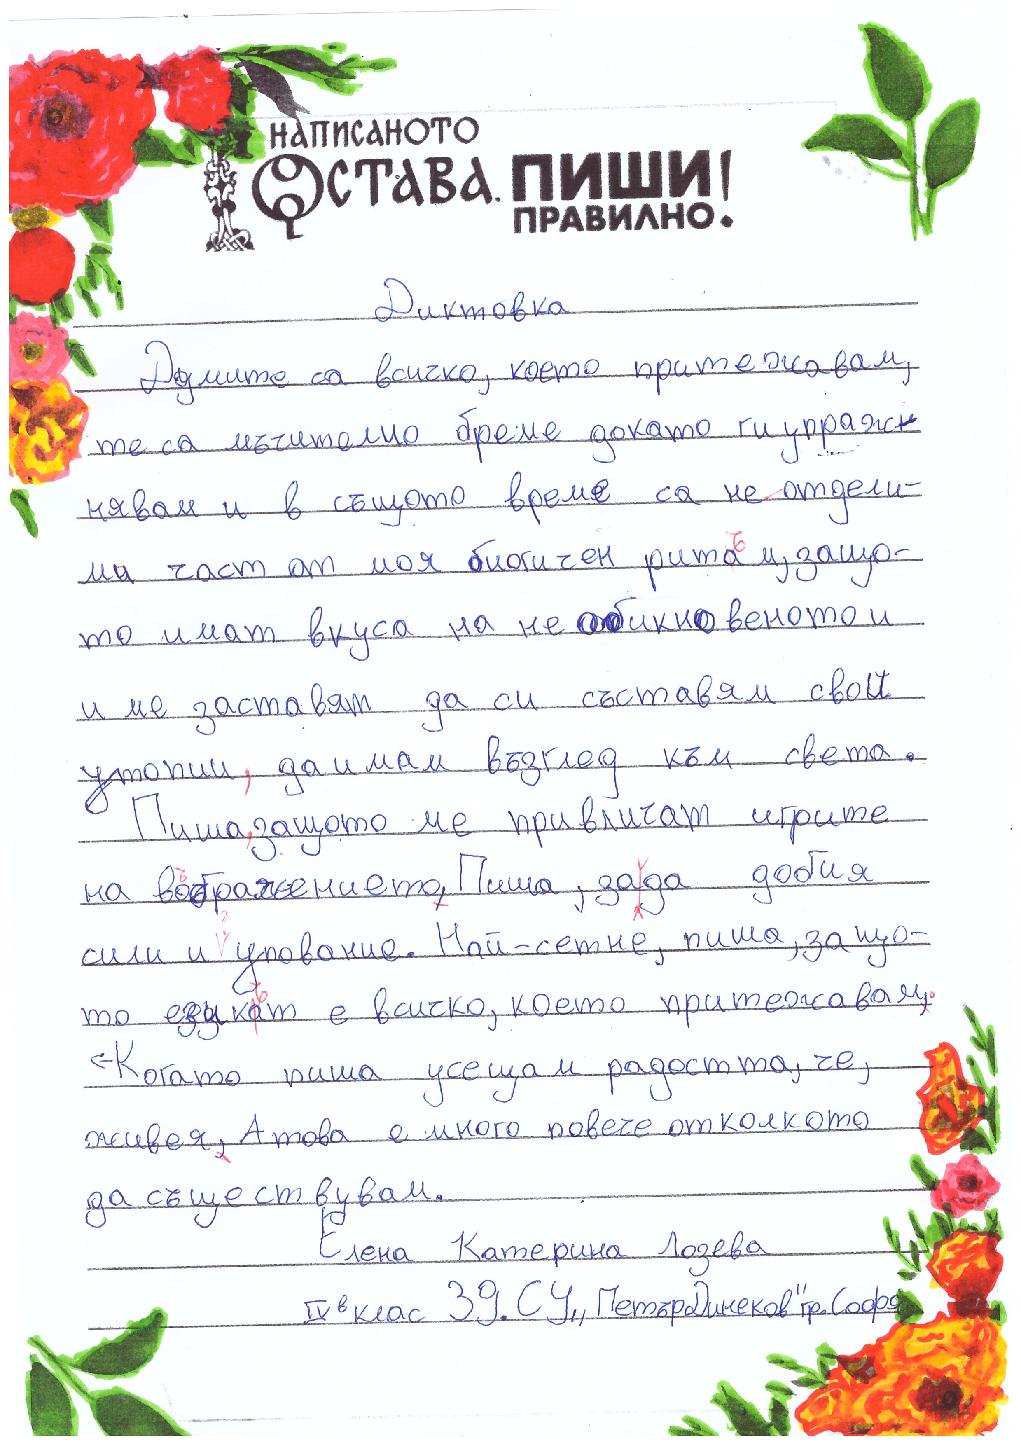 НАПИСАНОТО
ОСТАВА. ПИШИ
ПРАВИЛНО!
Диктовка
Думите са всичко, което притежавам,
те са мъчително бреме докато ги упраж-
нявам и в същото време са не отдели-
ма част от моя биогичен рита м, защо-
то имат вкуса на не обикновеното и
и ме заставят да си съставям свои
утопии, да имам възглед към света.
Пиша, защото ме привличат игрите
на вображението, Пиша, за да добия
сили и упование. Най-сетне, пиша, защо-
то езикат е всичко, което притежавам,
Когато пиша усещам радостта, че,
живея, А това е много повече отколкото
да съществувам.
Елена Катерина Лозева
IV в клас 39. СУ „Петър Динеков" гр. София